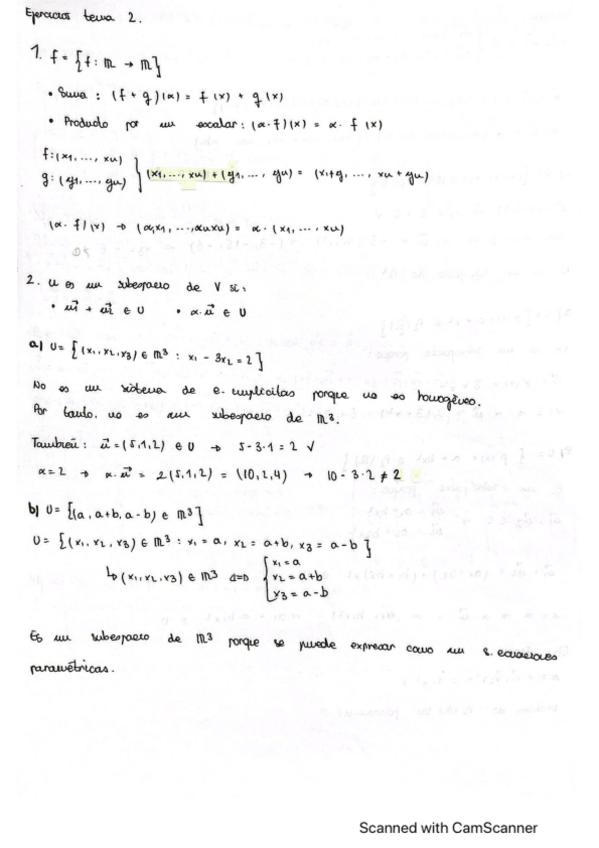 Ejercicios tema 2.
1. f = {f: ℝ → ℝ}
• Suma: (f + g)(x) = f(x) + g(x)
• Producto por un escalar: (α·f)(x) = α · f(x)
f: (x1, ..., xu)
g: (g1, ..., gu) } (x1, ..., xu) + (g1, ..., gu) = (x1+g, ..., xu + gu)
(α · f)(x) → (α,x1, ..., αuxu) = α · (x1, ..., xu)
2. U es un subespacio de V si:
• u⃗1 + u⃗2 ∈ U • α·u⃗ ∈ U
a) U = {(x1, x2, x3) ∈ ℝ³ : x1 - 3x2 = 2}
No es un sistema de e. implícitas porque no es homogéneo.
Por tanto, no es un subespacio de ℝ³.
También: u⃗ = (5,1,2) ∈ U → 5-3·1 = 2 √
α=2 → α·u⃗ = 2(5,1,2) = (10,2,4) → 10 - 3·2 ≠ 2
b) U = {(a, a+b, a-b) ∈ ℝ³}
U = {(x1, x2, x3) ∈ ℝ³ : x1 = a, x2 = a+b, x3 = a-b}
↳ (x1, x2, x3) ∈ ℝ³ ⇔ { x1 = a
x2 = a+b
x3 = a-b
Es un subespacio de ℝ³ porque se puede expresar como un s. ecuaciones
paramétricas.
Scanned with CamScanner